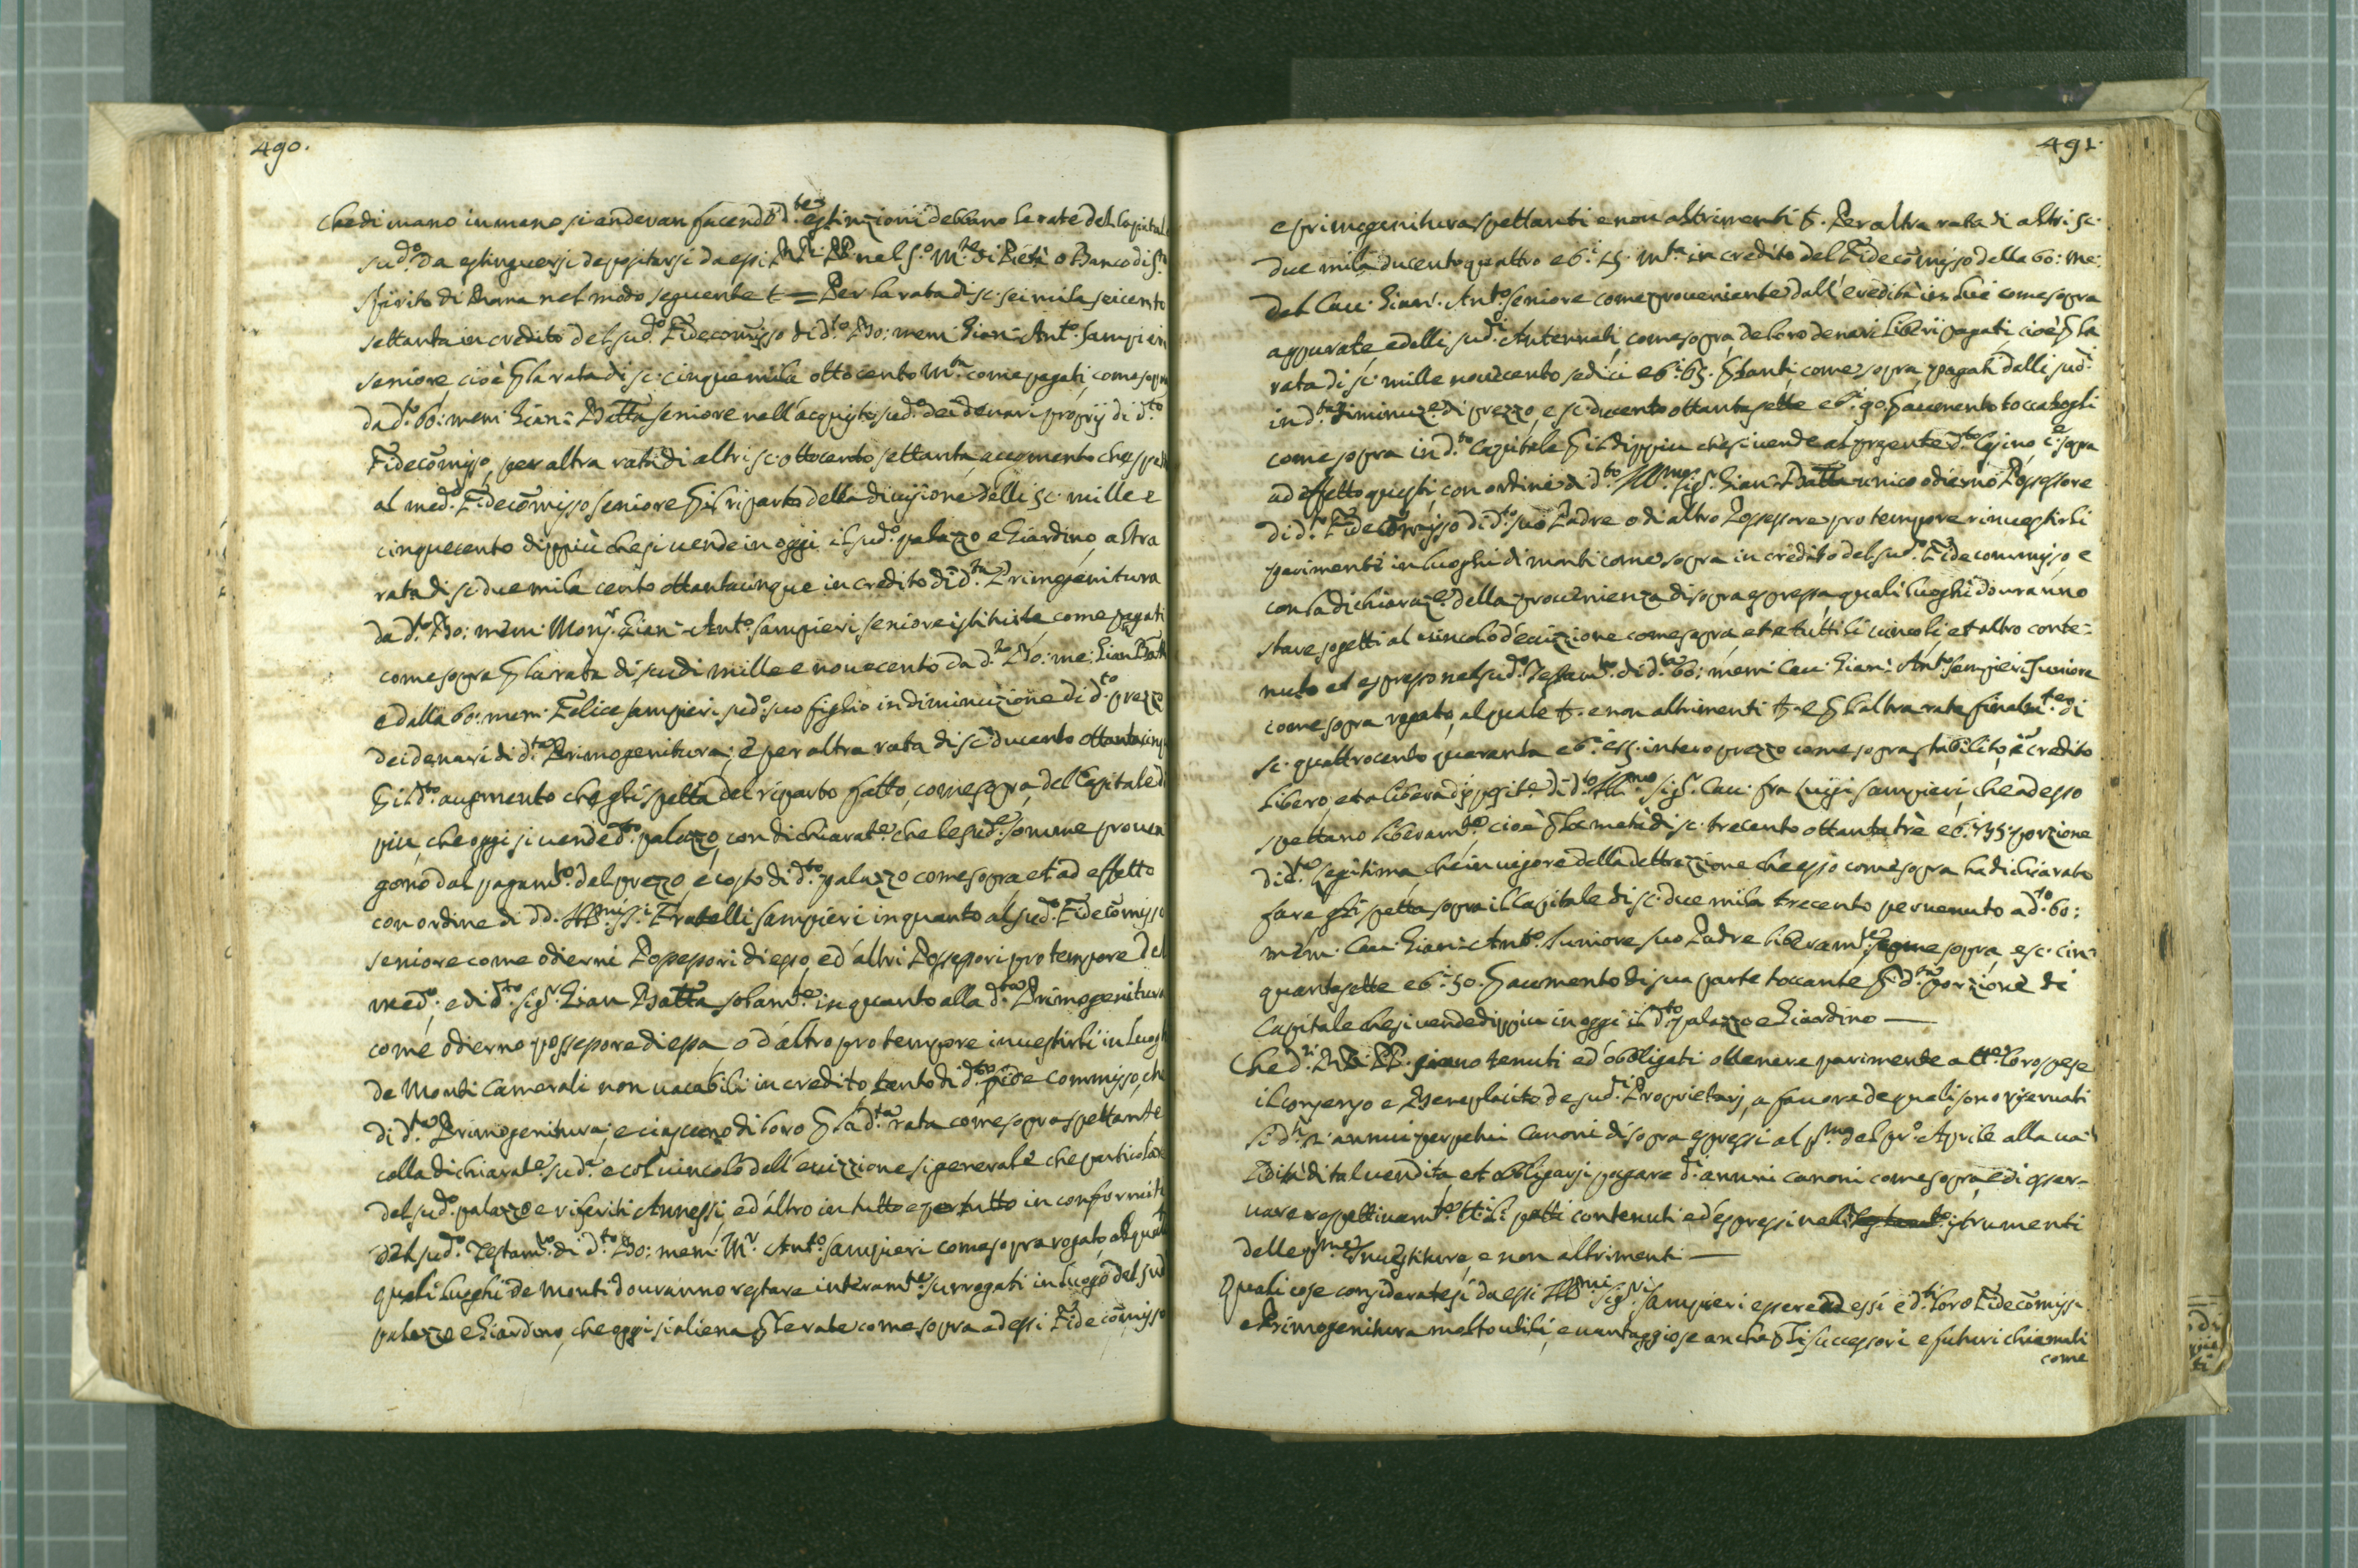 490.
Che di mano in mano si anderan facendo d.te estinzioni debbano le rate del Capitale
sud.o da estinguersi depositarsi da essi RR. PP. nel S.o M.te di Pietà o Banco di S.to
Spirito di Roma nel modo seguente t = Per la rata di sc. sei mila seicento
settanta in credito del sud.o Fidecom̄isso di d.to Bo: mem: Gian: Ant.o Sampieri
seniore, cioè p la rata di sc. cinque mila ottocento m.ta come pagati, come sopra
da d.to bo: mem: Gian: Batta seniore nell'acquisto sud.o dei denari proprij di d.to
Fidecom̄isso, per altra rata di altri sc. ottocento settanta augumento che spetta
al med.o Fidecom̄isso seniore p il riparto della divisione delli sc. mille e
cinquecento dippiù che si vende in oggi il sud.o palazzo e Giardino, altra
rata di sc. due mila cento ottantacinque in credito di d.ta Primogenitura
da d.to Bo: mem: Mons.r Gian: Ant.o Sampieri seniore istituita come pagati
come sopra p la rata di scudi mille e novecento da d.to Bo: me: Gian Batta
e dalla bo: mem: Felice Sampieri sud.o suo figlio in diminuzione di d.to prezzo
dei denari di d.ta Primogenitura; e per altra rata di sc. ducento ottantacinque
p il d.to augmento che gli spetta del riparto fatto, come sopra, del Capitale di
più, che oggi si vende d.to palazzo, con dichiarat.e che le sud.e somme proven
gono dal pagam.to del prezzo, e costo di d.to palazzo come sopra et ad effetto
con ordine di dd. Ill.mi SS.i Fratelli Sampieri in quanto al sud.o Fidecom̄isso
seniore come odierni Possessori di esso, ed altri Possessori pro tempore del
med.o; e di d.to Sig.r Gian Batta solam.te in quanto alla d.ta Primogenitura
come odierno possessore di essa o d'altro pro tempore investirli in luoghi
de Monti Camerali non vacabili in credito tanto di d.to fide commisso, che
di d.ta Primogenitura; e ciascuno di loro p la d.ta rata come sopra spettante
colla dichiarat.e sud.a e col vincolo dell'evizzione si generale che particolare
del sud.o palazzo e riferiti Annessi, ed altro in tutto e per tutto in conformità
del sud.o Testam.to di d.to Bo: mem: M.r Ant.o Sampieri come sopra rogato, al quale
quali luoghi de Monti dovranno restare interam.te surrogati in luogo del sud.
palazzo e Giardino, che oggi si aliena p le rate come sopra ad essi Fidecom̄isso
491.
e primogenitura spettanti e non altrimenti t. Per altra rata di altri sc.
due mila ducentoquattro e b.i 15. m.ta in credito del Fidecom̄isso della bo: me:
del Cav. Gian: Ant.o seniore come proveniente dall'eredità in lui come sopra
appurate, e delli sud.i Antennati, come sopra, de loro denari liberi pagati, cioè p la
rata di sc. mille novecento sedici e b.i 65. p tanti, come sopra, pagati dalli sud.i
in d.ta diminuz.e di prezzo, e sc. ducento ottantasette e b.i 90. p aumento toccatogli
come sopra in d.to Capitale p il dippiu che si vende al presente d.to Casino, c.e sopra
ad effetto questi con ordine di d.to Ill.mo Sig.r Gian Batta unico odierno Possessore
di d.to Fidecom̄isso di d.to suo Padre o di altro Possessore pro tempore rinvestirli
parimenti in luoghi di monti come sopra in credito del sud.o Fidecommisso e
con la dichiaraz.e della provenienza di sopra espressa, quali luoghi dovranno
stare sogetti al vincolo d'evizzione come sopra, et a tutti li vincoli, et altro conte=
nuto et espresso nel sud.o Testam.to di d.ta bo: mem: Cav. Gian: Ant.o Sampieri Juniore
come sopra rogato, al quale t. e non altrimenti t. e p l'altra rata finalm.te di
sc. quattrocento quaranta e b.i 55. intero prezzo come sopra stabilito, in credito
libero, et a libera disposit.e di d.to Ill.mo Sig.r Cav. fra Luigi Sampieri, che adesso
spettano liberam.te, cioè p la metà di sc. trecento ottantatrè e b.i 35. porzione
di d.ta legitima, che in vigore della dettrazzione che esso come sopra ha dichiarato
fare gli spetta sopra il Capitale di sc. due mila trecento pervenuto a d.to bo:
mem: Cav. Gian: Ant.o Juniore suo Padre liberam.te come sopra, e sc. cin=
quantasette e b.i 50. p aumento di sua parte toccante p d.ta porzione di
Capitale che si vende dippiu in oggi il d.to palazzo e Giardino —
Che d.i RR. PP. siano tenuti ed obbligati ottenere parimente a tt.e loro spese
il consenso e Beneplacito de sud.i Proprietarj, a favore de quali sono riservati
li d.i annui perpetui Canoni di sopra espressi al p.mo del pr.o Aprile alla va=
lidità di tal vendita, et obbligarsi pagare d.i annui canoni come sopra, ed osser=
vare respettivam.te tt.i li patti contenuti ed espressi nelli istrumenti
delle p.me Investiture, e non altrimenti —
Quali cose consideratesi da essi Ill.mi Sig.ri Sampieri essere ad essi e d.ti loro Fidecom̄issi
e Primogenitura molto utili, e vantaggiose anche p li successori e futuri chiamati
come